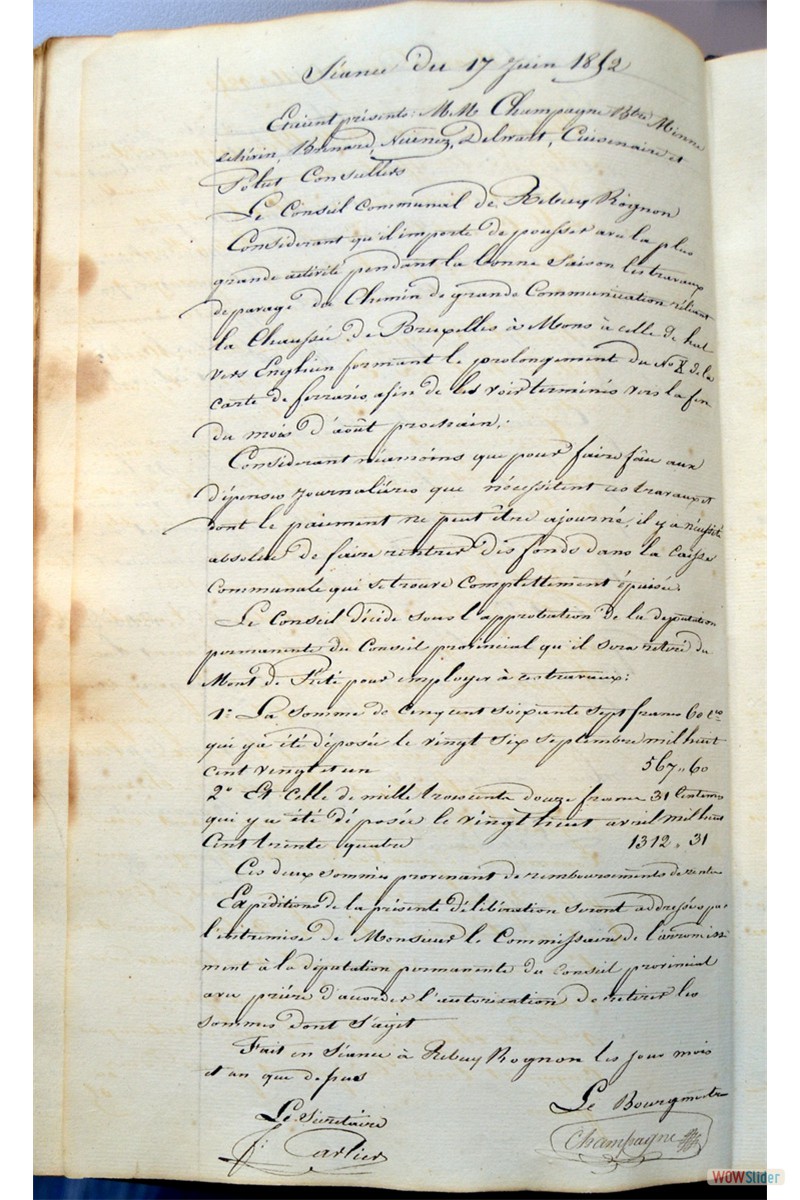 Séance du 17 Juin 1852
Etaient présents: M.M. Champagne Bgtre Minne
Echevin, Brenard, Delwart, Cuisenaire et
Polut Consullers
Le Conseil Communal de Rebecq Rognon
Considerant qu'il importe de pousser avec la plus
grande activité pendant la bonne saison les travaux
de pavage du Chemin de grande Communication réliant
la Chaussée de Bruxelles à Mons à celle de hal
vers Enghien formant le prolongement du No X de la
carte de ferraris, afin de les voir terminés vers la fin
du mois d'août prochain;
Considerant néamoins que pour faire face aux
dépenses journalières que nécessitent ces travaux et
dont le paiement ne peut être ajourné, il y a nécessité
absolue de faire rentrer des fonds dans la caisse
Communale qui se trouve complettement épuisée.
Le Conseil décide sous l'approbation de la députation
permanente du Conseil provincial qu'il sera retiré du
Mont de Piété pour employer à ces travaux:
1º La somme de Cinq cent soixante sept francs 60 cmes
qui y a été déposée le vingt six septembre mil huit
cent vingt et un 567,, 60
2º Et celle de mille trois cents douze francs 31 Centimes
qui y a été déposée le vingt huit avril mil huit
Cent trente quatre 1312,, 31
Ces deux sommes provenant de remboursements de rentes
Expéditions de la présente délibération seront addressées par
l'entremise de Monsieur le Commissaire de l'arrondisse
ment à la députation permanente du Conseil provincial
avec prière d'accorder l'autorisation de retirer les
sommes dont s'agit
Fait en séance à Rebecq Rognon les jour mois
et an que dessus
Le Bourgmestre
Le Secrétaire
Champagne
J: Carlier
WOWSlider